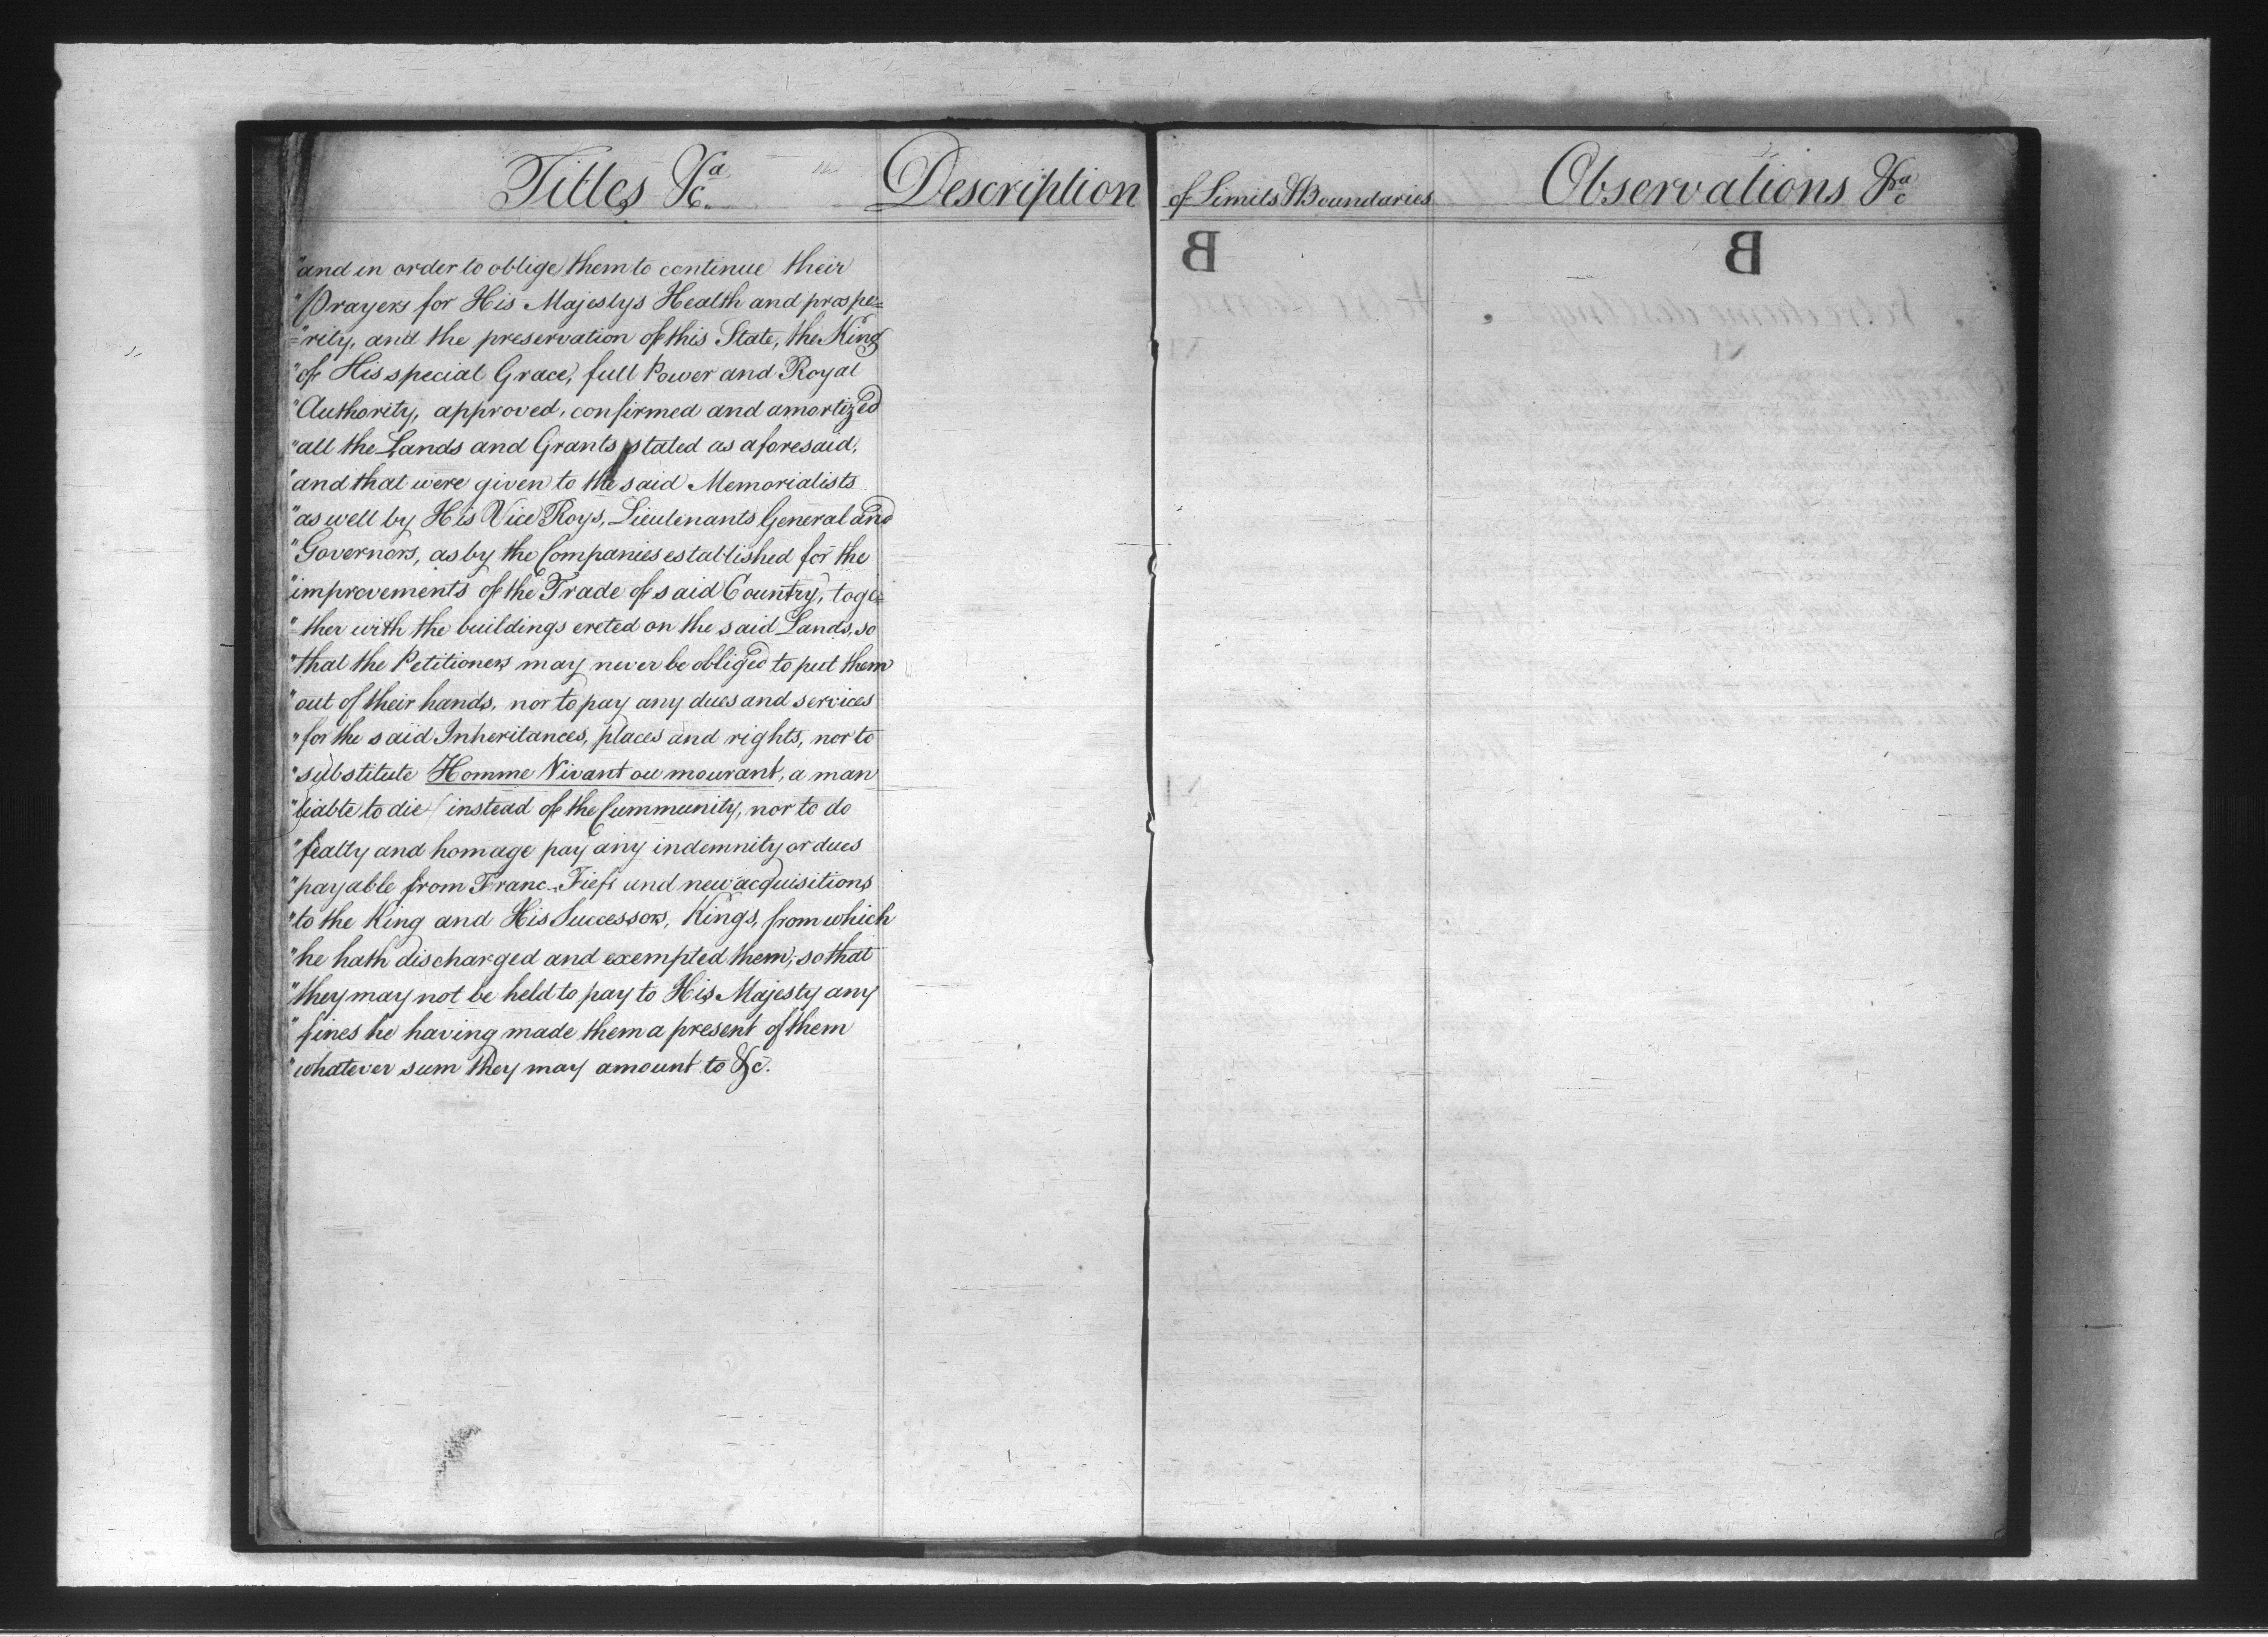 Titles &ca.
Description of Limits & Boundaries
Observations &ca
"and in order to oblige them to continue their
"Prayers for His Majestys Health and prospe=
"=rity, and the preservation of this State, the King
"of His special Grace, full Power and Royal
"Authority, approved, confirmed and amortized
"all the Lands and Grants stated as aforesaid,
"and that were given to the said Memorialists
"as well by His Vice Roys, Lieutenants General and
"Governors, as by the Companies established for the
"improvements of the Trade of said Country, toge=
"=ther with the buildings ereted on the said Lands, so
"that the Petitioners may never be obliged to put them
"out of their hands, nor to pay any dues and services
"for the said Inheritances, places and rights, nor to
"substitute Homme Vivant ou mourant, a man
"liable to die ( instead of the Cummunity, nor to do
"fealty and homage pay any indemnity or dues
"payable from Franc-Fiefs und new acquisitions
"to the King and His Successors, Kings, from which
"he hath discharged and exempted them, so that
"they may not be held to pay to His Majesty any
"fines he having made them a present of them
"whatever sum they may amount to &c.
B
B